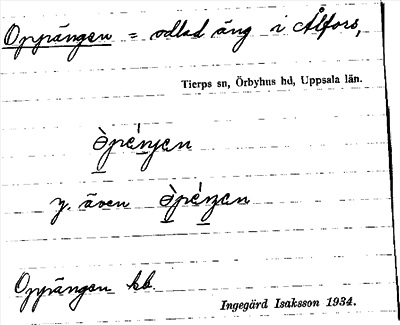 Oppängen = odlad äng i Ålfors,
Tierps sn, Örbyhus hd, Uppsala län.
y. även
Oppängen kb.
Ingegärd Isaksson 1934.